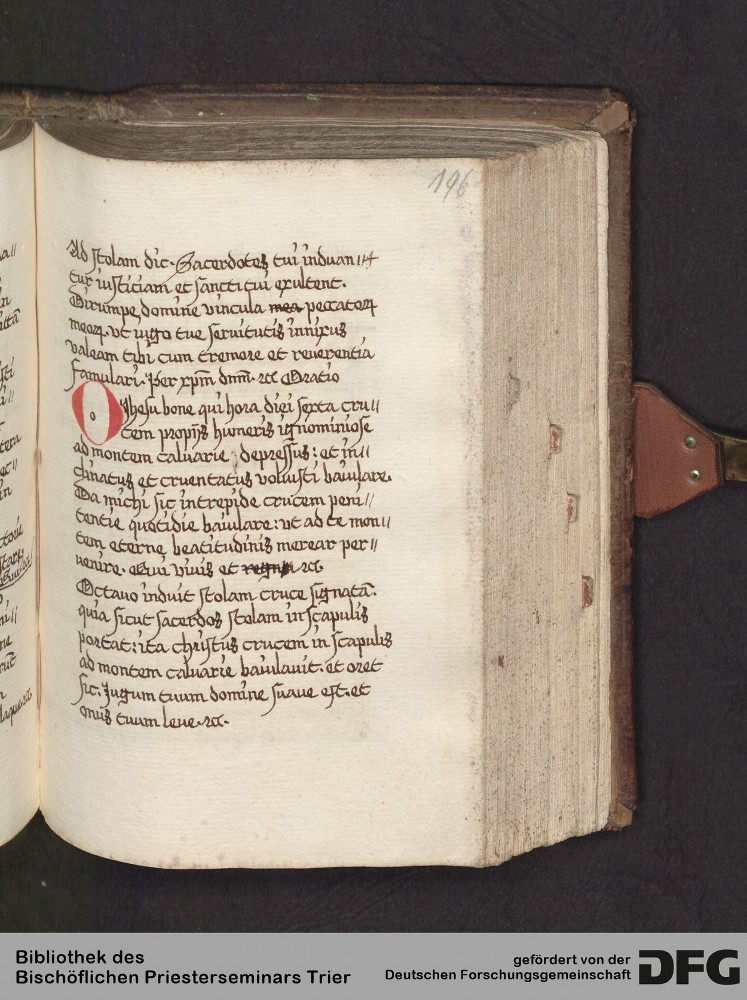 196
Ad stolam dic. Sacerdotes tui induan
tur iusticiam et sancti tui exultent.
Dirumpe domine vincula mea peccatoꝝ
meoꝝ. vt iugo tue seruitutis innixus
valeam tibi cum tremore et reuerentia
famulari. Per xpm dnm. ꝛc Oratio
O Jhesu bone qui hora diei sexta cru//
cem propijs humeris ignominiose
ad montem caluarie depressus: et in//
clinatus et cruentatus voluisti baiulare.
Da michi sic intrepide crucem peni//
tentie quotidie baiulare: vt ad te mon//
tem eterne beatitudinis merear per//
uenire. Qui viuis et regnas ꝛc.
Octauo induit stolam cruce signatā.
quia sicut sacerdos stolam in scapulis
portat: ita christus crucem in scapulis
ad montem caluarie baiulauit. et oret
sic. Jugum tuum domine suaue est. et
onus tuum leue. ꝛc.
Bibliothek des
Bischöflichen Priesterseminars Trier
gefördert von der
Deutschen Forschungsgemeinschaft
DFG